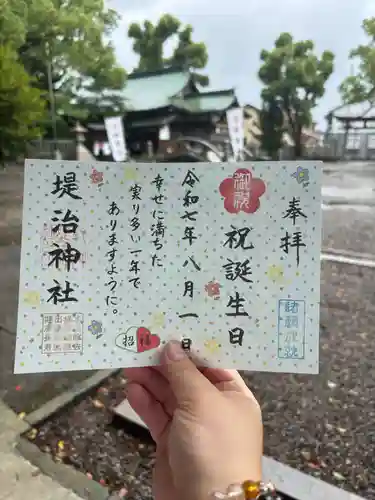 奉拝
御祝
祝誕生日
令和七年八月一日
幸せに満ちた
実り多い一年で
ありますように。
堤治神社
招福
諸願成就